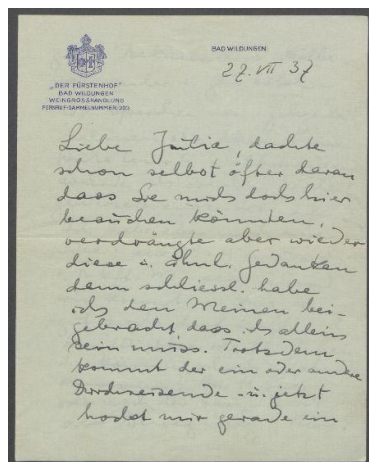 BAD WILDUNGEN
27. VII 37
"DER FÜRSTENHOF"
BAD WILDUNGEN
WEINGROSSHANDLUNG
FERNRUF-SAMMELNUMMER:
Liebe Julia, dachte
schon selbst öfter daran
dass Sie mich doch hier
besuchen könnten,
verdrängte aber wieder
diese u. ähnl. Gedanken
denn schliessl. habe
ich den Meinen bei-
gebracht dass ich allein
sein muss. Trotzdem
kommt der ein oder andere
Durchreisende u. jetzt
hockt mir gerade ein